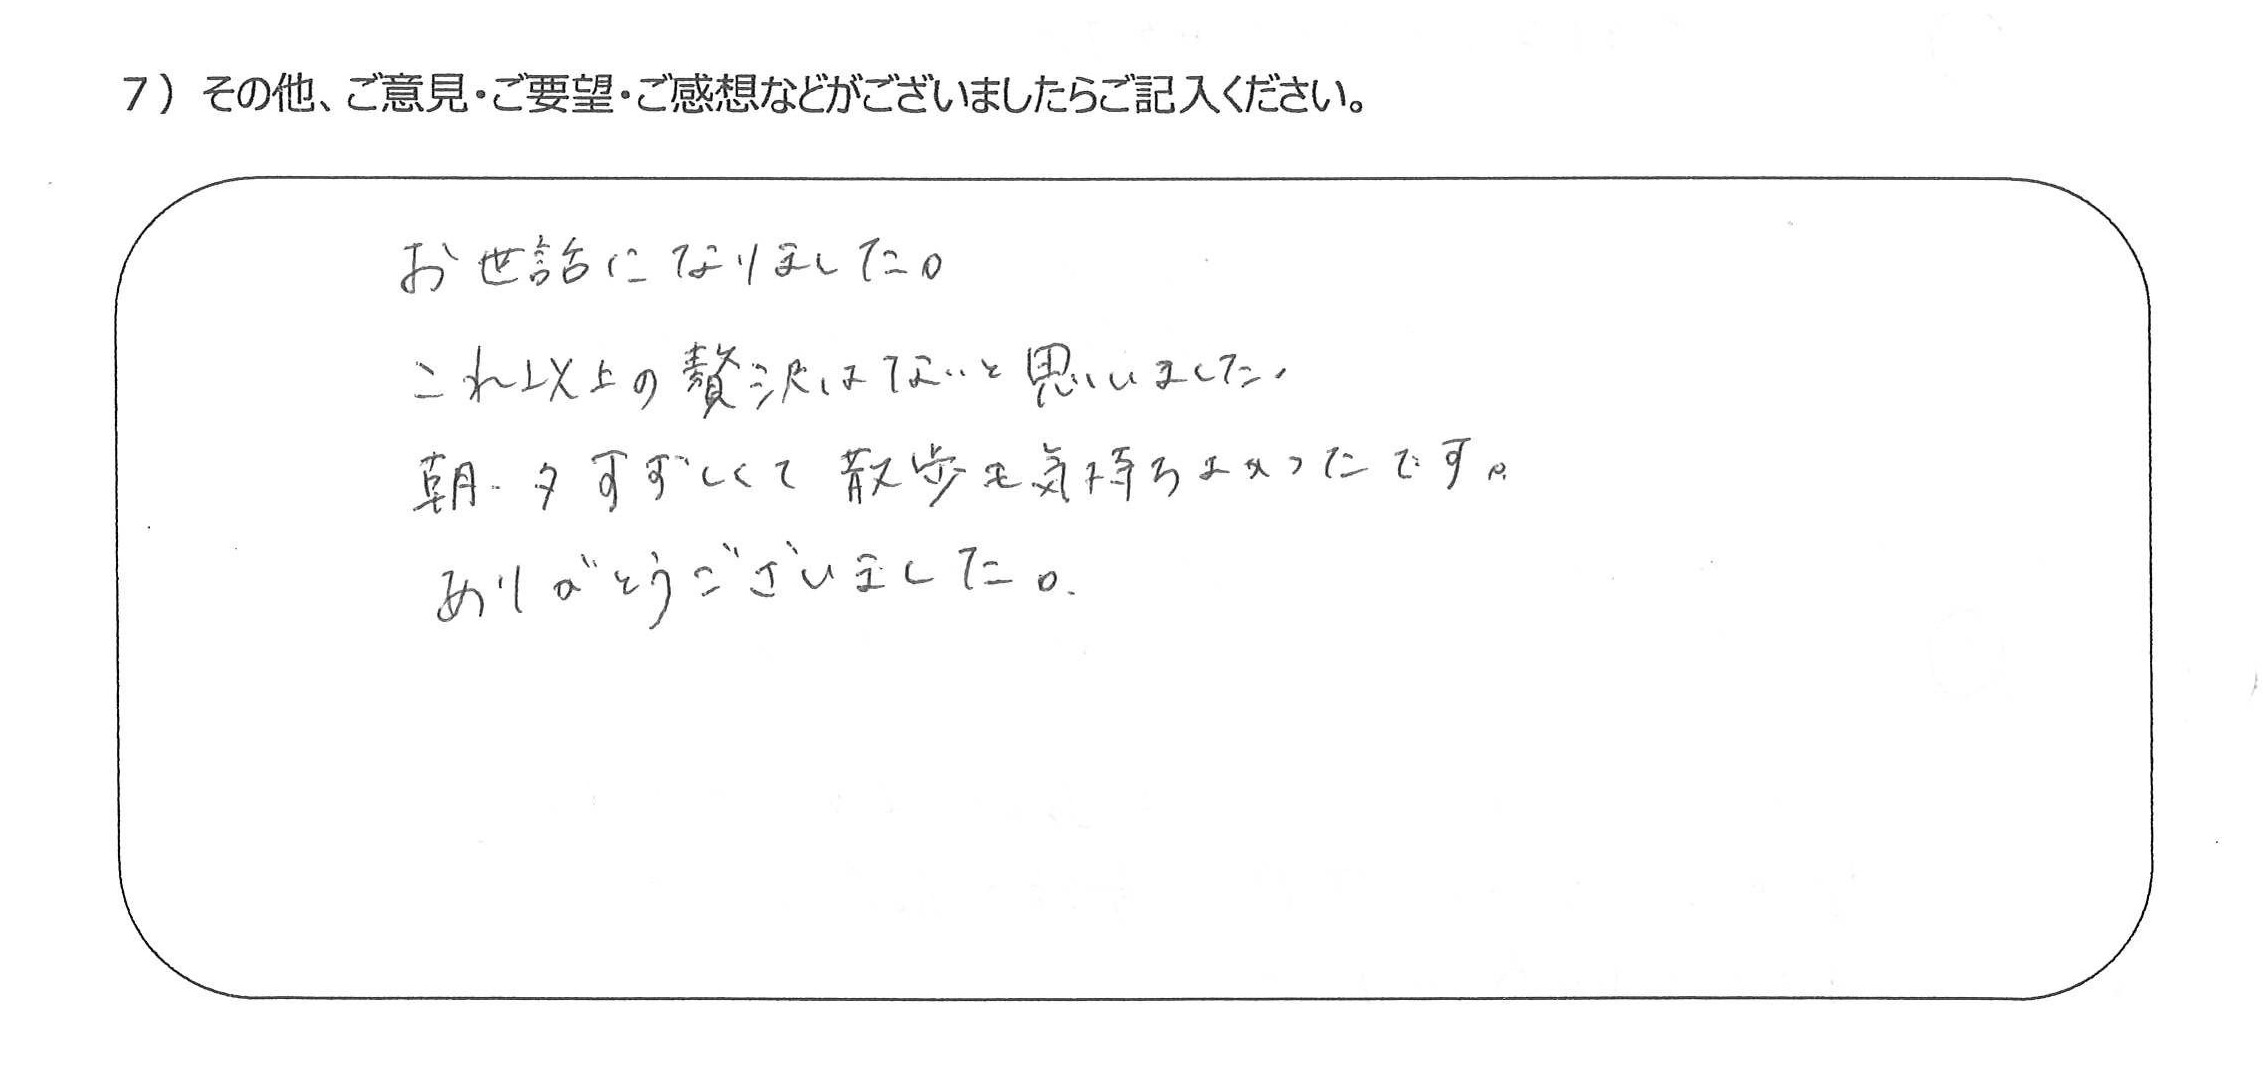 7）その他、ご意見・ご要望・ご感想などがございましたらご記入ください。
お世話になりました。
これ以上の贅沢はないと思いました。
朝・夕すずしくて散歩も気持ちよかったです。
ありがとうございました。